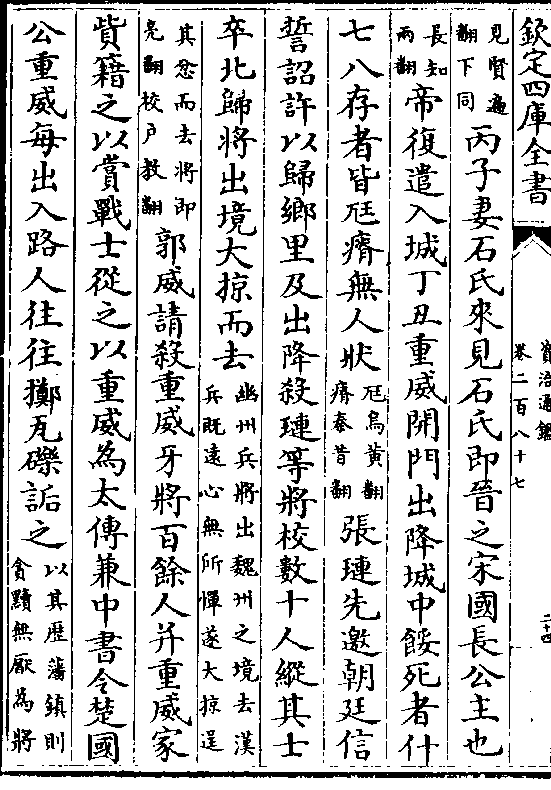 欽定四庫全書
資治通鑑
卷二百八十七
二十四
見賢遍翻下同丙子妻石氏來見石氏即晉之宋國長公主也
長知兩翻帝復遣入城丁丑重威開門出降城中餒死者什
七八存者皆尫瘠無人狀尫烏黄翻瘠秦昔翻張璉先邀朝廷信
誓詔許以歸鄉里及出降殺璉等將校數十人縱其士
卒北歸將出境大掠而去幽州兵將出魏州之境去漢兵既遠心無所憚遂大掠逞
其忿而去將即亮翻校户教翻郭威請殺重威牙將百餘人并重威家
貲籍之以賞戰士從之以重威為太傅兼中書令楚國
公重威每出入路人往往擲瓦礫詬之以其歷藩鎮則貪黷無厭為將